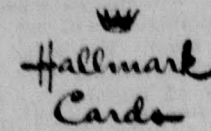 Hallmark
Cards